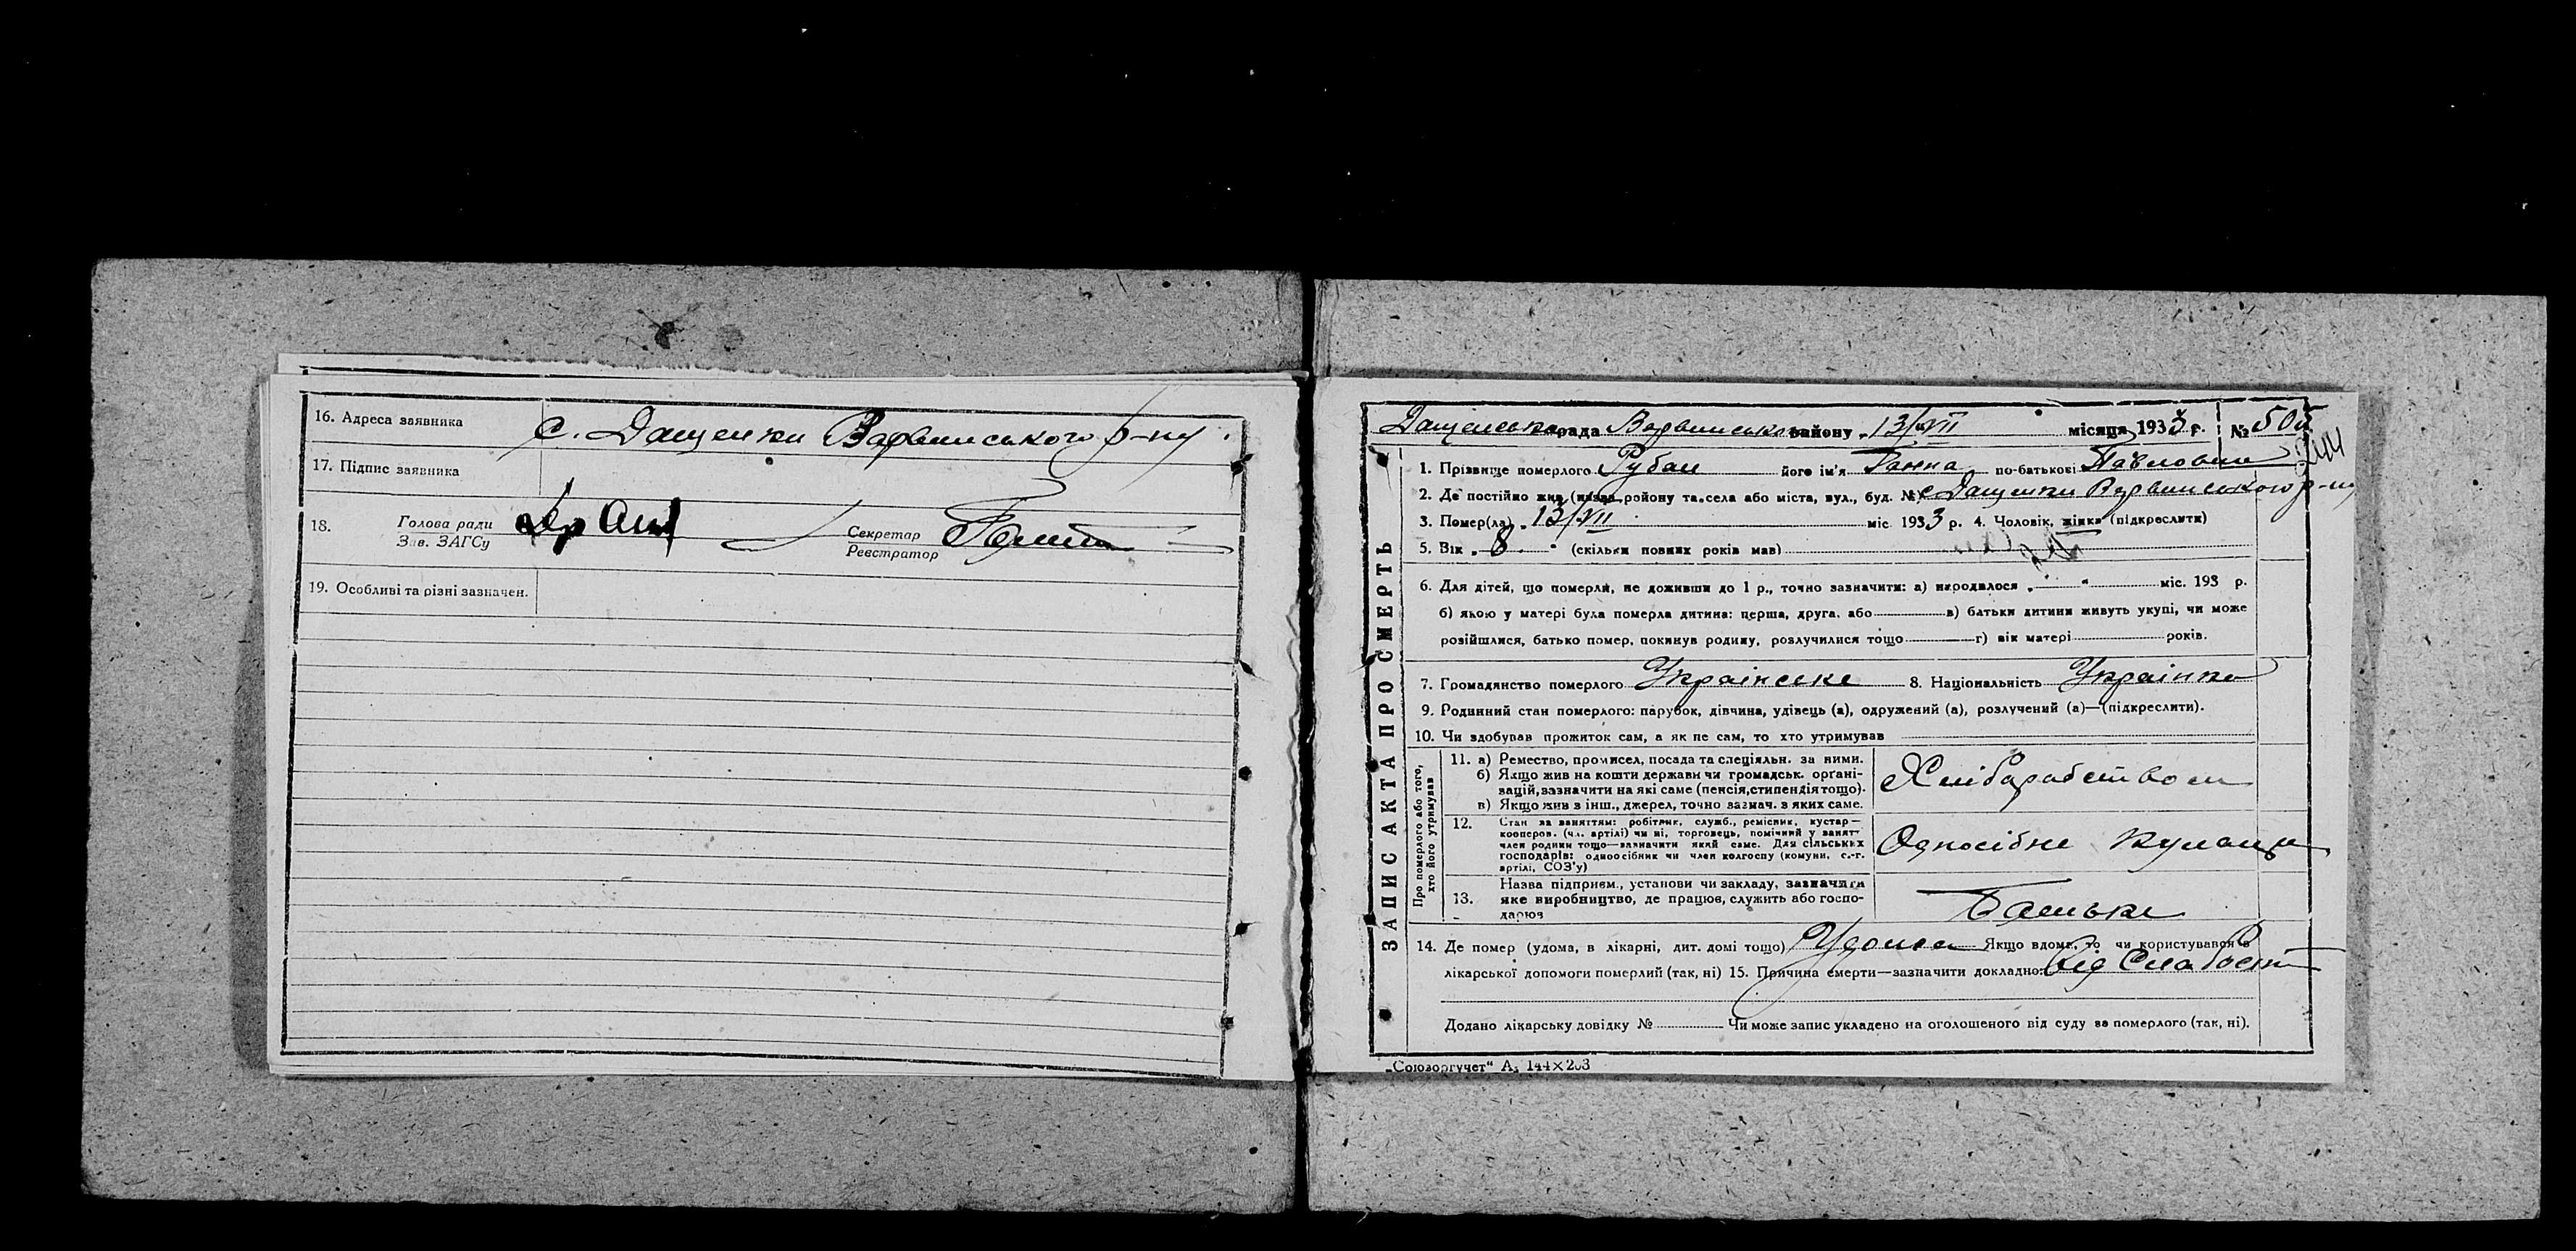 16. Адреса заявника с. Дащенки Варвинського р-ну
17. Підпис заявника
18. Голова ради
Зав. ЗАГСу
Секретар
Реєстратор
19. Особливі та різні зазначен.
ЗАПИС АКТА ПРО СМЕРТЬ
Дащенська рада Варвинського району „13/VII місяця 1933 р. № 505
244
1. Прізвище померлого Рубан його ім'я Ганна по-батькові Павловна
2. Де постійно жив (назва району та села або міста, вул., буд. № с. Дащенки Варвинського р-ну
3. Помер(ла) „13/VII міс 1933 р. 4. Чоловік, жінка (підкреслити)
5. Вік „8 (скільки повних років мав)
6. Для дітей, що померли, не доживши до 1 р., точно зазначити: а) народилося „ “ міс. 193 р.
б) якою у матері була померла дитина: перша, друга, або в) батьки дитини живуть укупі, чи може
розійшлися, батько помер, покинув родину, розлучилися тощо г) вік матері років.
7. Громадянство померлого Українське 8. Національність Українка
9. Родинний стан померлого: парубок, дівчина, удівець (а), одружений (а), розлучений (а)—(підкреслити).
10. Чи здобував прожиток сам, а як не сам, то хто утримував
Про померлого або того,
хто його утримував
11. а) Ремество, промисел, посада та спеціяльн. за ними.
б) Якщо жив на кошти держави чи громадськ. орґані-
зацій, зазначити на які саме (пенсія, стипендія тощо).
в) Якщо жив з інш., джерел, точно зазнач. з яких саме.
Хліборобством
12. Стан за заняттям: робітник, служб., ремісник, кустар—
кооперов. (чл. артілі) чи ні, торговець, помічний у занят-
член родини тощо—зазначити який саме. Для сільських
господарів: одноосібник чи член колгоспу (комуни, с.-г.
артілі, СОЗ'у)
Односібне
13. Назва підприєм., установи чи закладу, зазначити
яке виробництво, де працює, служить або госпо-
дарює
Батьки
14. Де помер (удома, в лікарні, дит. домі тощо) Удома Якщо вдома, то чи користувався з
лікарської допомоги померлий (так, ні) 15. Причина смерти—зазначити докладно: Від Слабости
Додано лікарську довідку № Чи може запис укладено на оголошеного від суду за померлого (так, ні).
„Союзоргучет“ А₅ 144×203